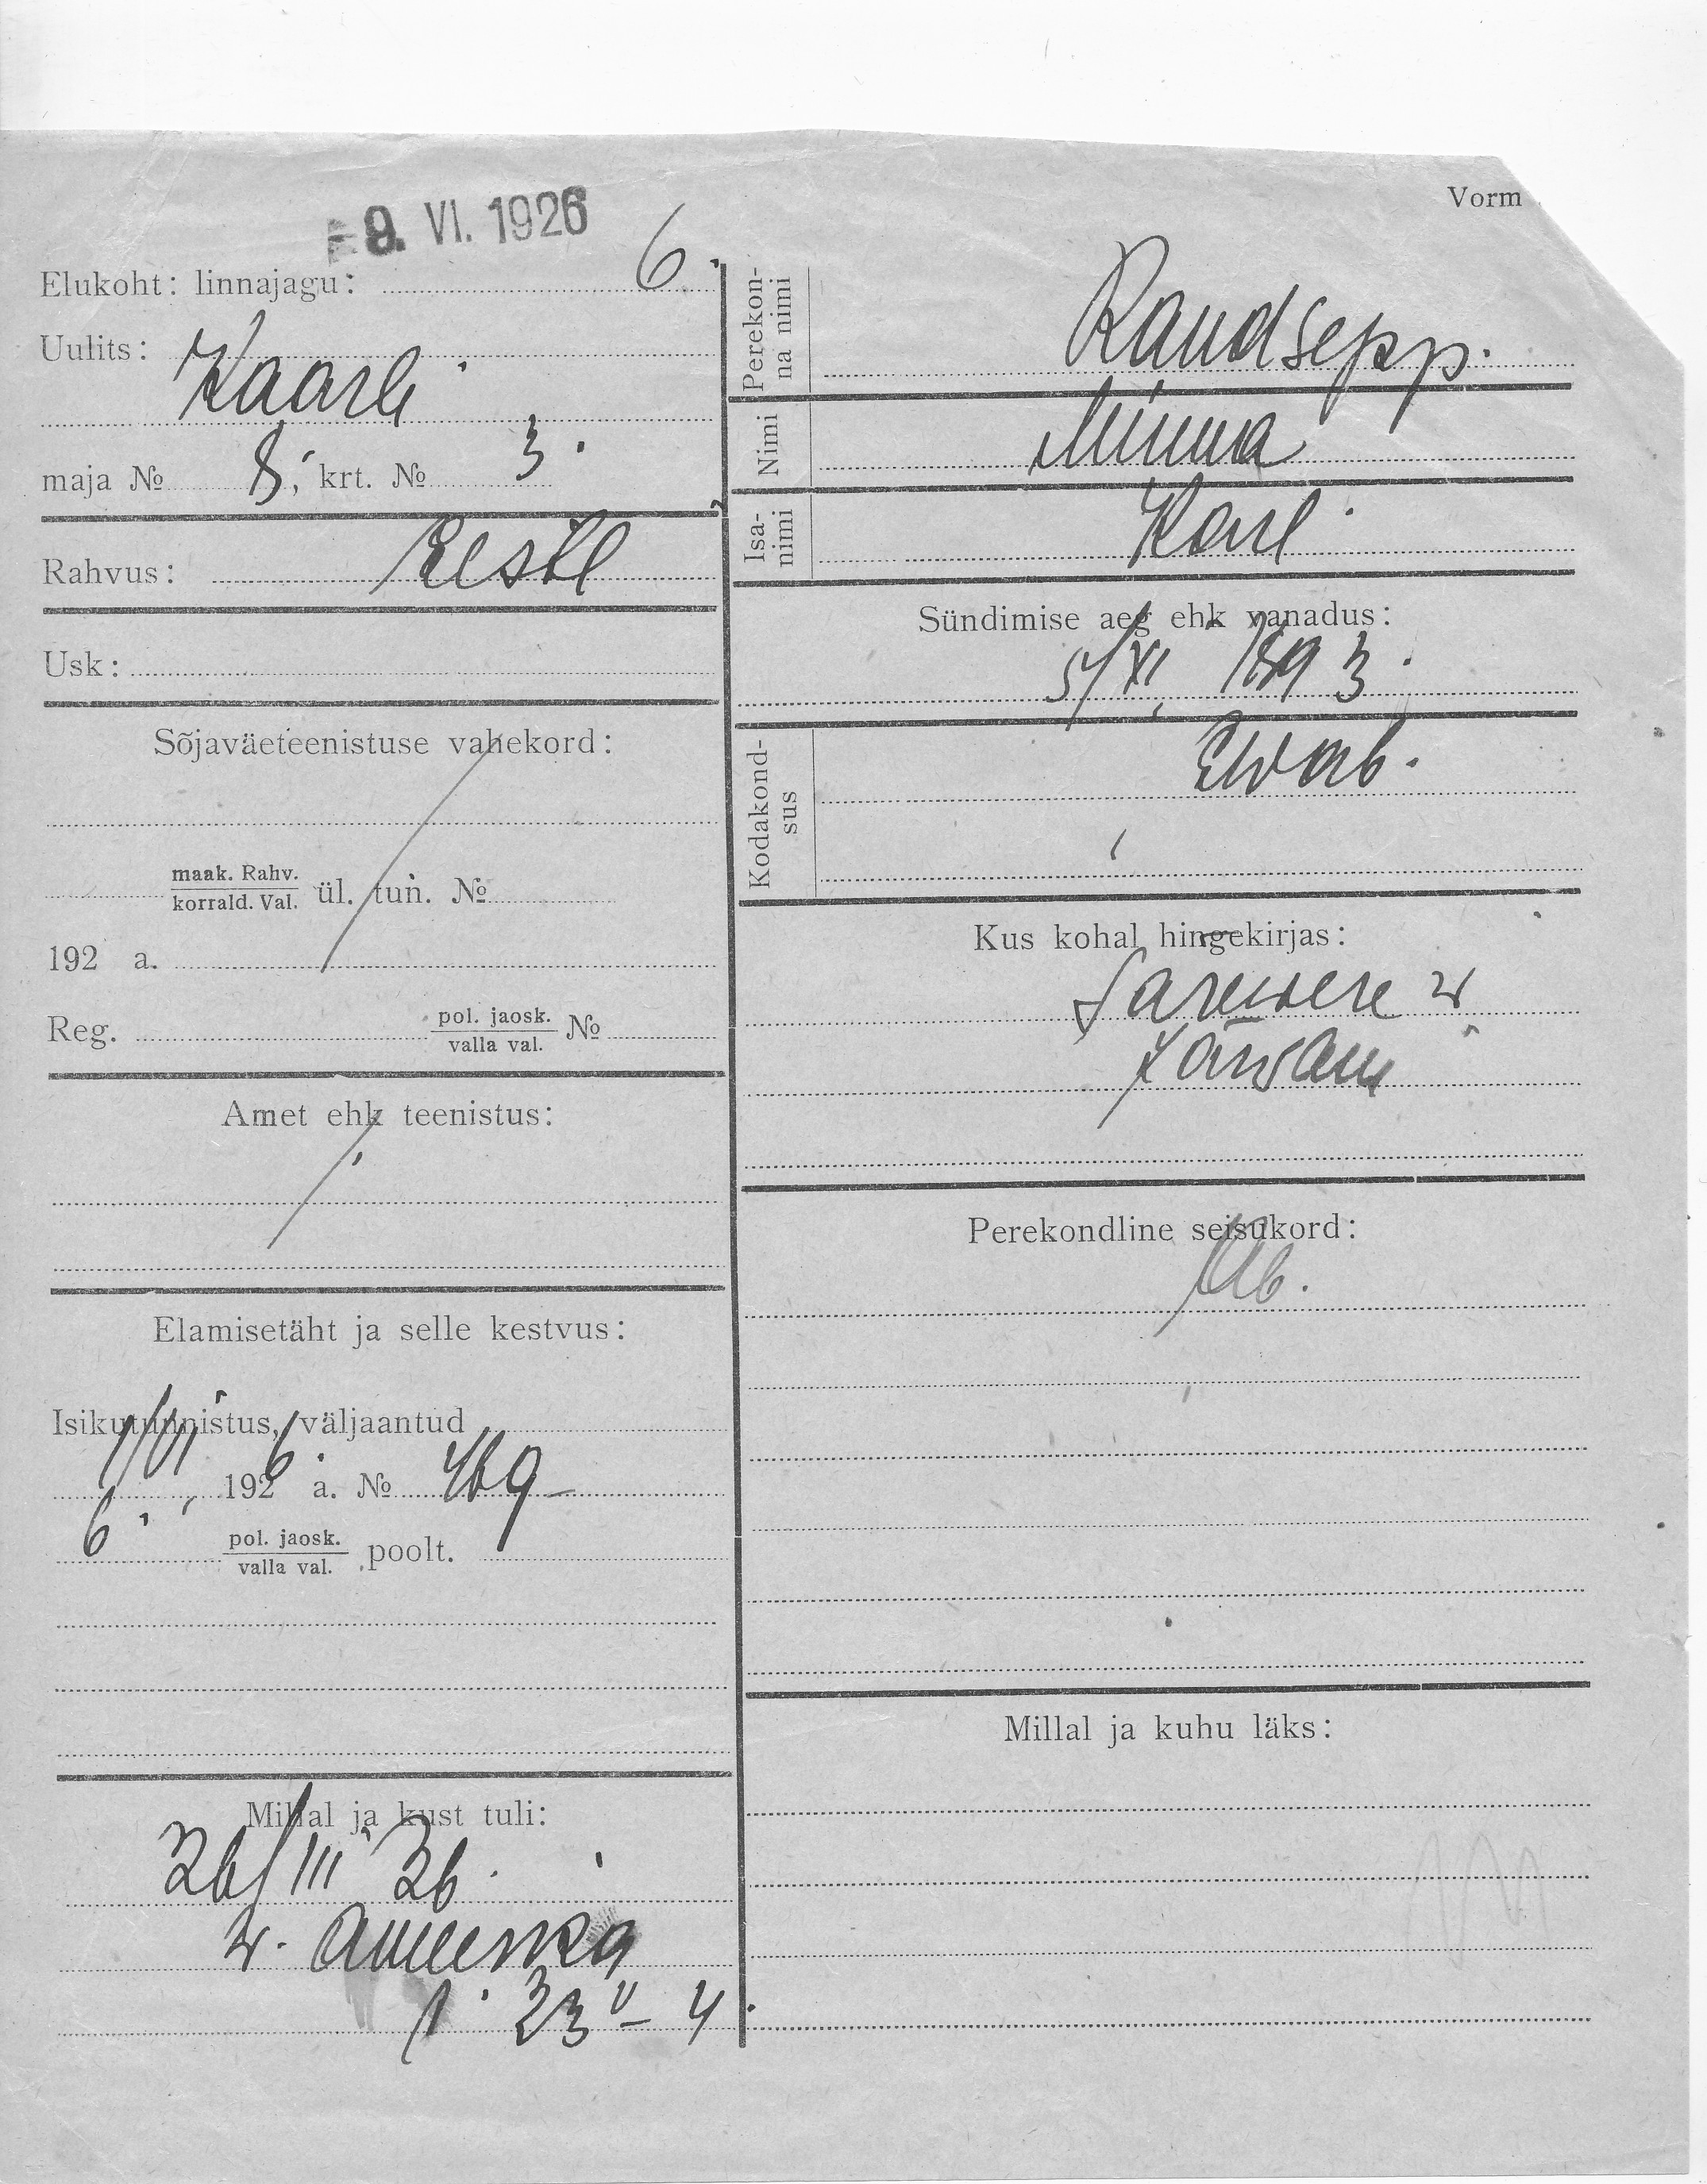 9. VI. 1926
Vorm
Elukoht: linnajagu: 6.
Uulits: Kaarli
maja № 8, krt. № 3.
Rahvus: Eesti
Usk:
Sõjaväeteenistuse vahekord:
maak. Rahv.
korrald. Val. ül. tun. №
192 a.
Reg. pol. jaosk.
valla val. №
Amet ehk teenistus:
Elamisetäht ja selle kestvus:
Isikutunnistus, väljaantud
1/VI 1926 a. № 469
6. pol. jaosk.
valla val. poolt.
Millal ja kust tuli:
26/III 26.
w. 
23 - 4.
Perekon-
na nimi Raudsepp.
Nimi Minna
Isa-
nimi Karl
Sündimise aeg ehk vanadus:
5/XI, 1893.
Kodakond-
sus Ewab.
Kus kohal hingekirjas:
Sarewere w
Järwam
Perekondline seisukord:
Ab.
Millal ja kuhu läks: